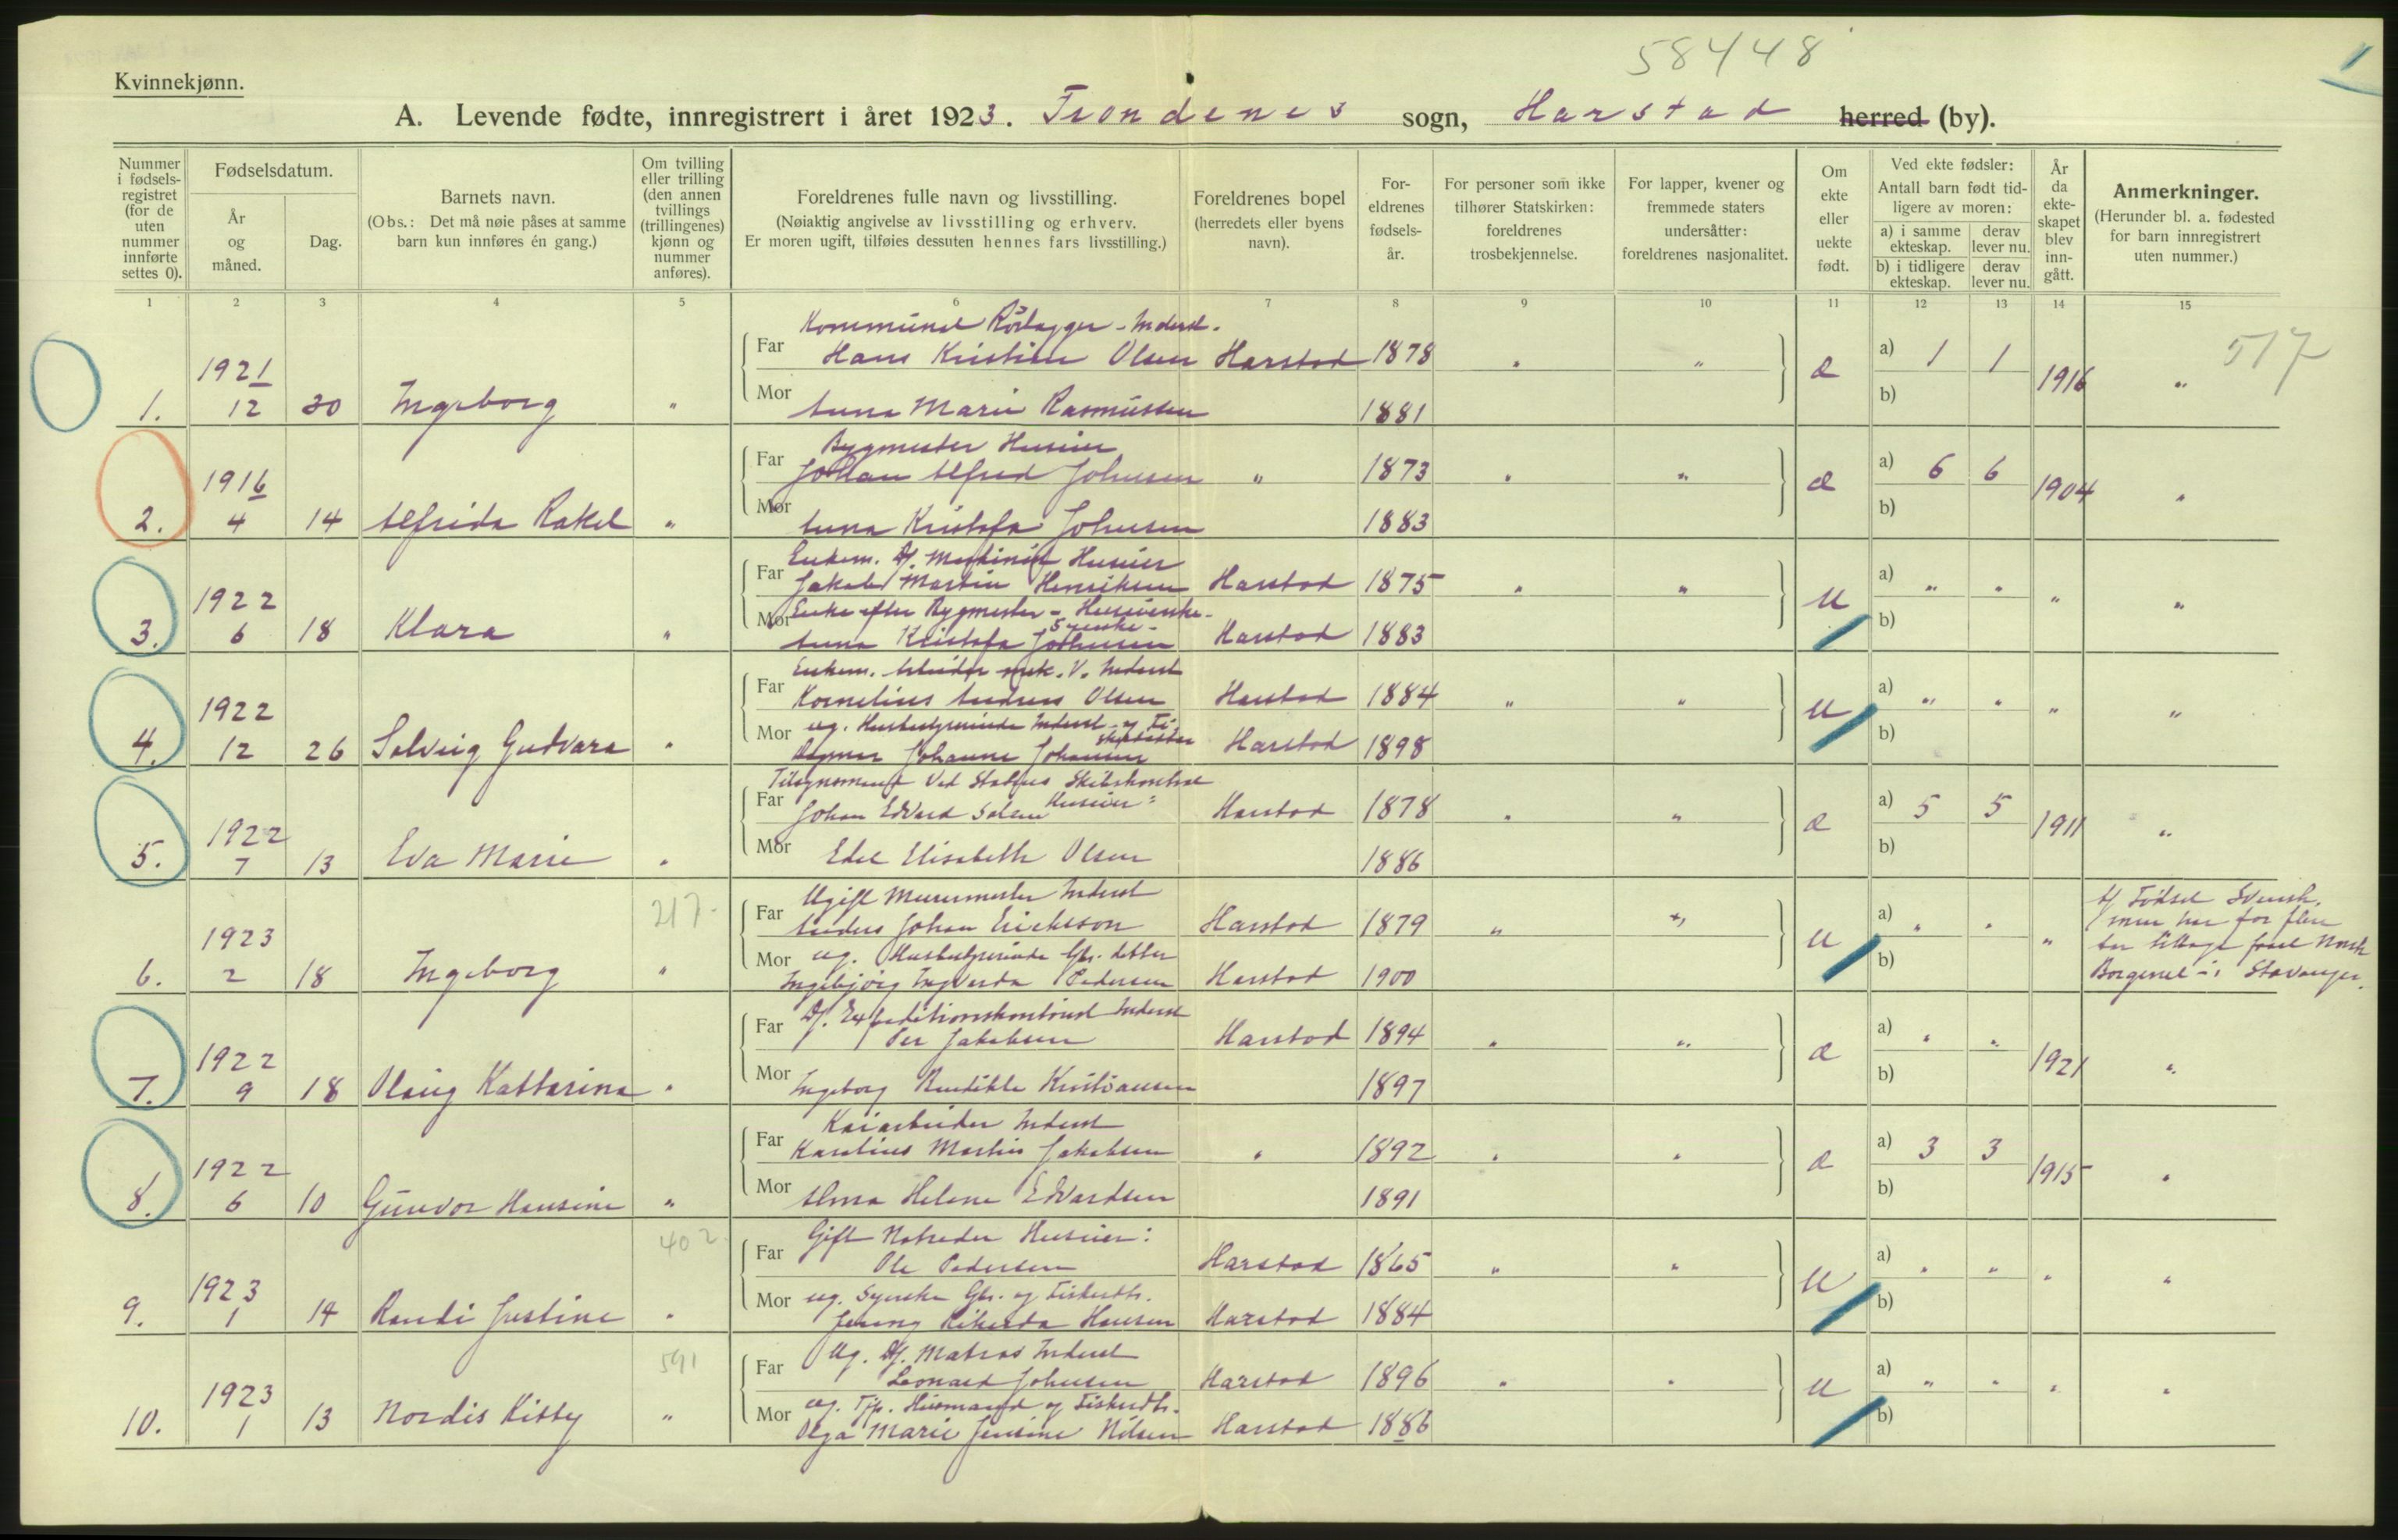 58448
1
Kvinnekjønn.
A. Levende fødte, innregistrert i året 1923. Trondenes sogn, Harstad herred (by).
Nummer i fødsels-registret (for de uten nummer innførte settes 0).
Fødselsdatum.
År og måned.
Dag.
Barnets navn.
(Obs.: Det må nøie påses at samme barn kun innføres én gang.)
Om tvilling eller trilling (den annen tvillings (trillingenes) kjønn og nummer anføres).
Foreldrenes fulle navn og livsstilling.
(Nøiaktig angivelse av livsstilling og erhverv.
Er moren ugift, tilføies dessuten hennes fars livsstilling.)
Foreldrenes bopel (herredets eller byens navn).
For-eldrenes fødsels-år.
For personer som ikke tilhører Statskirken: foreldrenes trosbekjennelse.
For lapper, kvener og fremmede staters undersåtter: foreldrenes nasjonalitet.
Om ekte eller uekte født.
Ved ekte fødsler:
Antall barn født tid-ligere av moren:
a) i samme ekteskap. derav lever nu.
b) i tidligere ekteskap. derav lever nu.
År da ekte-skapet blev inn-gått.
Anmerkninger.
(Herunder bl. a. fødested for barn innregistrert uten nummer.)
1 2 3 4 5 6 7 8 9 10 11 12 13 14 15
Kommunal Rörlægger - Inderst.
Far Hans Kristian Olsen Harstad 1878 " "
1. 1921 12 30 Ingeborg "
Mor Anna Marie Rasmussen 1881
æ a) 1 1 b) 1916 " 517
Bygmester Huseier
Far Johan Alfred Johnsen " 1873 " "
2. 1916 4 14 Alfrida Rakel "
Mor Anna Kristofa Johnsen 1883
æ a) 6 6 b) 1904 "
Enkem. Df. Maskinist Huseier
Far Jakob Martin Henriksen Harstad 1875 " "
3. 1922 6 18 Klara "
Mor Enke efter Bygmester - Huseierske -
Syerske -
Anna Kristofa Johnsen Harstad 1883
U a) " " b) " "
Enkem. Arbeider mek. V. Inderst
Far Kornelius Andreas Olsen Harstad 1884 " "
4. 1922 12 26 Solveig Gudvara "
Mor ug. Husbestyrerinde Inderst og
Dagmar Johanne Johansen Harstad 1898
U a) " " b) " "
Tilsynsmand Ved Statens Skibskontrol
Far Johan Edvard Solem Huseier: Harstad 1878 " "
5. 1922 7 13 Eva Marie "
Mor Edel Elisabeth Olsen 1886
æ a) 5 5 b) 1911 "
217.
Ugift Murermester Inderst
Far Anders Johan Erickson Harstad 1879 " +)
6. 1923 2 18 Ingeborg "
Mor ug. Husbestyrerinde Gbr. datter
Ingebjörg Ingvarda Pedersen Harstad 1900
U a) " " b) "
Af Fødsel Svensk.
men har for flere
Aar tilbage faaet Norsk
Borgerret i Stavanger.
Df. Expeditionskontorist Inderst
Far Per Jakobsen Harstad 1894 " "
7. 1922 9 18 Olaug Kattarina "
Mor Ingeborg Bendikte Kristiansen 1897
æ a) " " b) 1921 "
Kaiarbeider Inderst
Far Karelius Martin Jakobsen " 1892 " "
8. 1922 6 10 Gunvor Hansine "
Mor Alma Helene Edvardsen 1891
æ a) 3 3 b) 1915 "
402.
Gift Notreder Huseier:
Far Ole Pedersen Harstad 1865 " "
9. 1923 1 14 Randi Justine "
Mor ug. Syerske Gbr. og Fiskerdtr.
Jenny Rikarda Hansen Harstad 1884
U a) " " b) " "
591
Ug. Df. Matros Inderst
Far Leonard Johnsen Harstad 1896 " "
10. 1923 1 13 Nordis Kitty "
Mor ug. Tjp. Husmand og Fiskerdtr.
Olga Marie Jensine Nilsen Harstad 1886
U a) " " b) " "